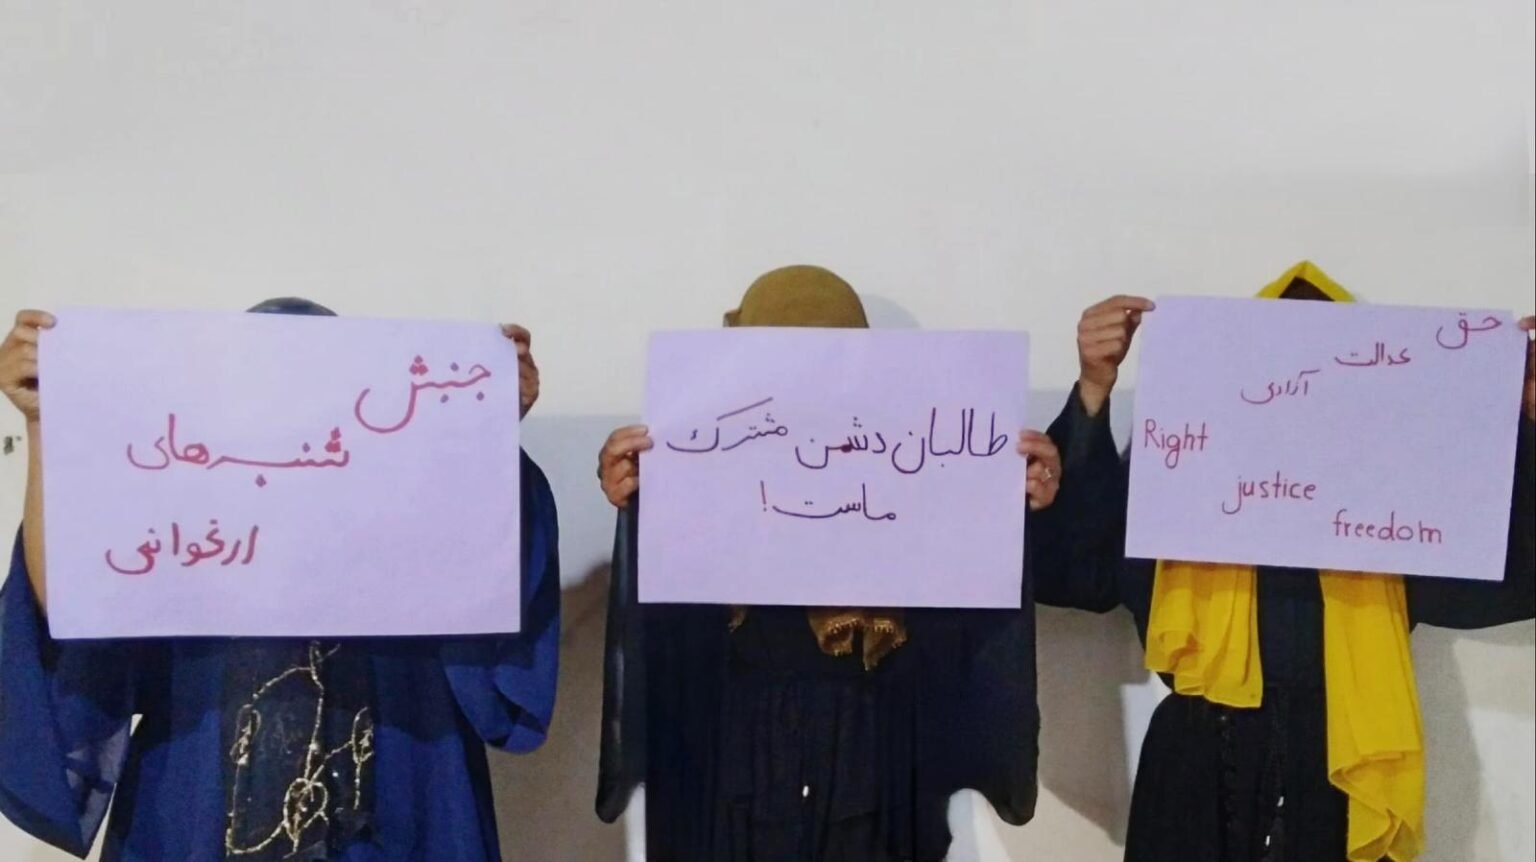 جنبش
شنبه‌های
ارغوانی
طالبان دشمن مشترک
ماست!
حق
عدالت
آزادی
Right
justice
freedom